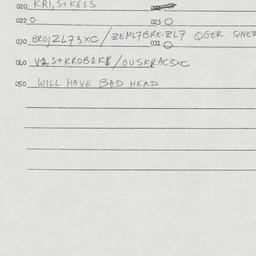 020 KRI, S+K81S
022 O 023 O
030 BRO/ZL73XC/ZEML7BRE.ZL7 QGER QNEB
031 O
040 V1, S+KROB1K8/OUSKRAC3XC
050 WILL HAVE BAD HEAD